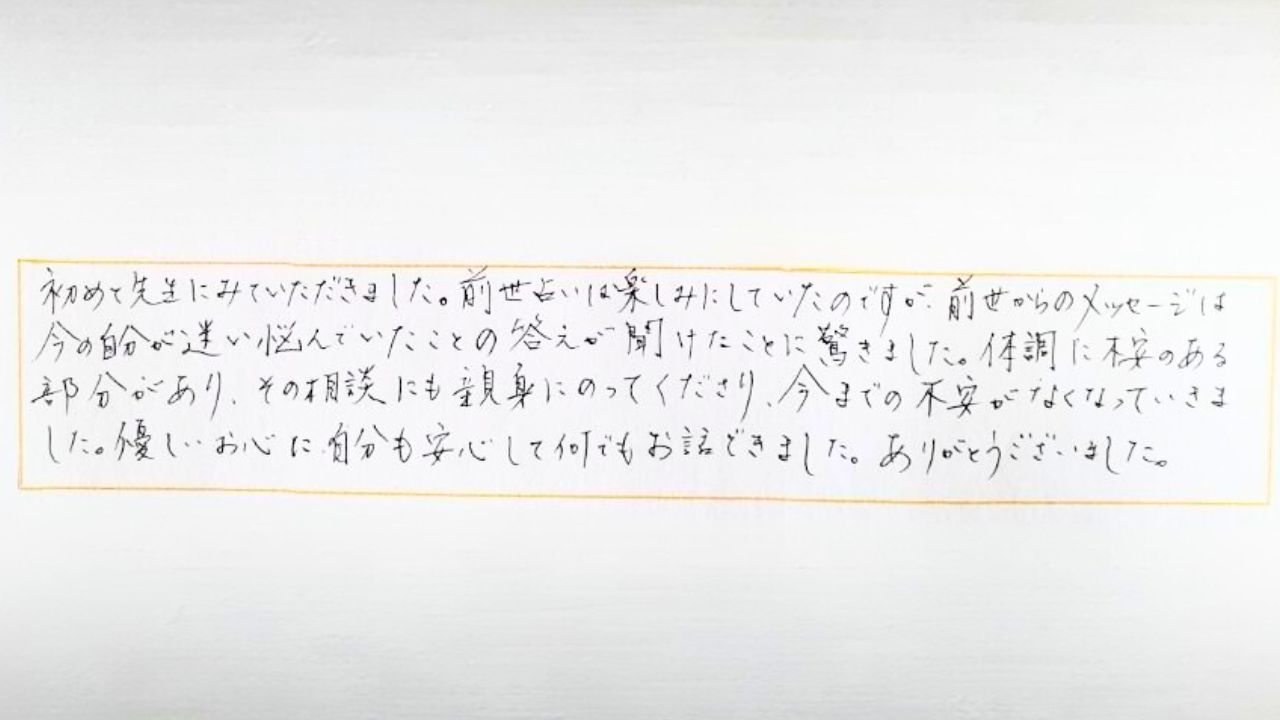 初めて先生にみていただきました。前世占いは楽しみにしていたのですが、前世からのメッセージは
今の自分が迷い悩んでいたことの答えが聞けたことに驚きました。体調に不安のある
部分があり、その相談にも親身にのってくださり、今までの不安がなくなっていきま
した。優しいお心に自分も安心して何でもお話できました。ありがとうございました。